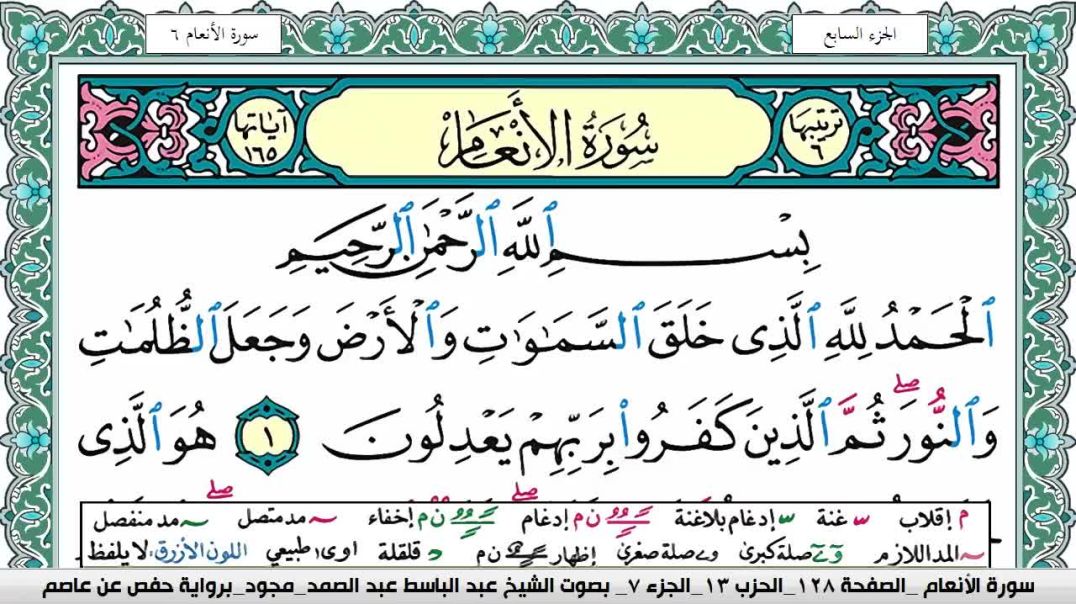 الجزء السابع
سورة الأنعام ٦
ترتيبها ٦
سُورَةُ الأَنْعَامِ
آياتها ١٦٥
بِسْمِ ٱللَّهِ ٱلرَّحْمَٰنِ ٱلرَّحِيمِ
ٱلْحَمْدُ لِلَّهِ ٱلَّذِى خَلَقَ ٱلسَّمَٰوَٰتِ وَٱلْأَرْضَ وَجَعَلَ ٱلظُّلُمَٰتِ
وَٱلنُّورَ ۖ ثُمَّ ٱلَّذِينَ كَفَرُوا۟ بِرَبِّهِمْ يَعْدِلُونَ ١ هُوَ ٱلَّذِى
م إقلاب غنة إدغام بلاغنة ن م إدغام ن م إخفاء مد متصل مد منفصل
المد اللازم صلة كبرى صلة صغرى إظهار ن م قلقلة اوى طبيعي اللون الأزرق: لا يلفظ
سورة الأنعام _الصفحة ١٢٨_الحزب ١٣_الجزء ٧_ بصوت الشيخ عبد الباسط عبد الصمد_مجود_برواية حفص عن عاصم